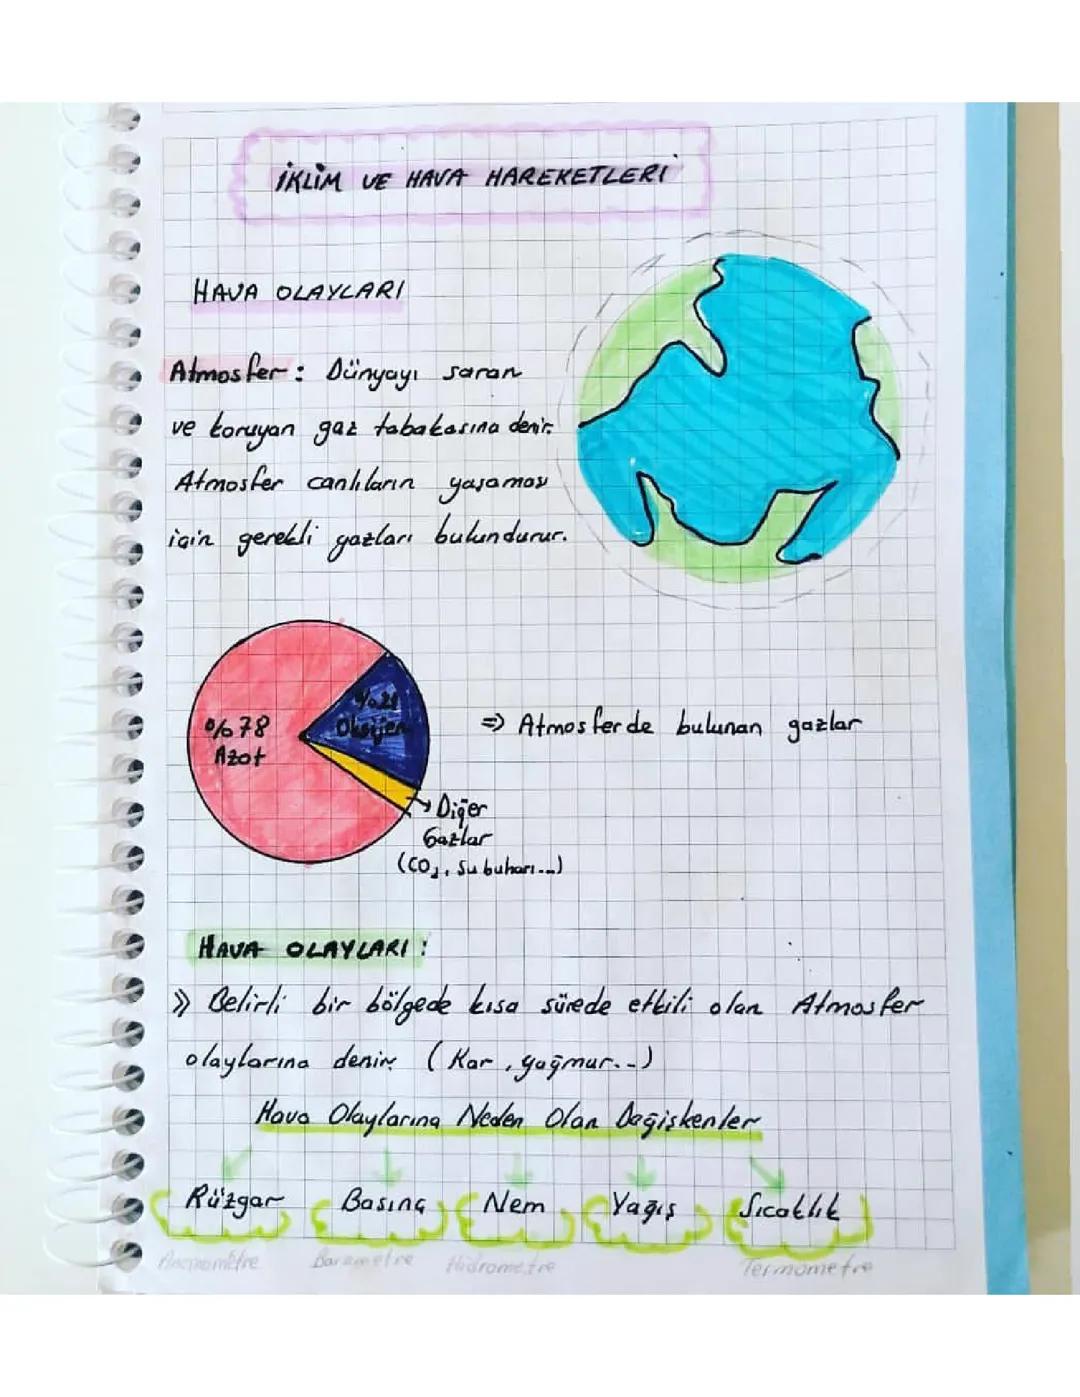 İKLİM VE HAVA HAREKETLERİ
HAVA OLAYLARI
Atmosfer: Dünyayı saran
ve koruyan gaz tabakasına denir.
Atmosfer canlıların yaşaması
için gerekli gazları bulundurur.
%78
Azot
%21
Oksijen
=> Atmosferde bulunan gazlar
Diğer
Gazlar
(CO₂, Su buharı...)
HAVA OLAYLARI:
» Belirli bir bölgede kısa sürede etkili olan Atmosfer
olaylarına denir. (Kar, yağmur...)
Hava Olaylarına Neden Olan Değişkenler
Rüzgar Basınç Nem Yağış Sıcaklık
Anemometre Barometre Hidrometre Termometre